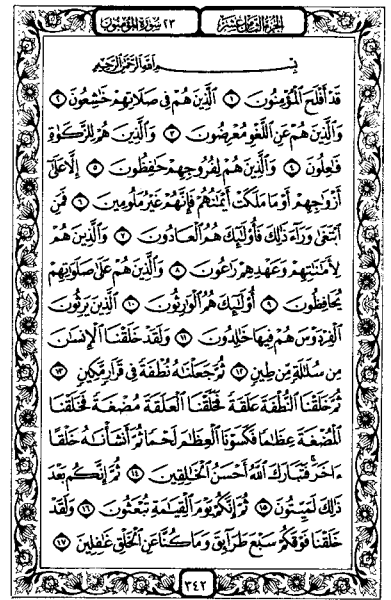 الجزء الثامن عشر ٢٣ سورة المؤمنون
بِسْمِ اللَّهِ الرَّحْمَٰنِ الرَّحِيمِ
قَدْ أَفْلَحَ الْمُؤْمِنُونَ ١ الَّذِينَ هُمْ فِي صَلَاتِهِمْ خَاشِعُونَ ٢
وَالَّذِينَ هُمْ عَنِ اللَّغْوِ مُعْرِضُونَ ٣ وَالَّذِينَ هُمْ لِلزَّكَوٰةِ
فَاعِلُونَ ٤ وَالَّذِينَ هُمْ لِفُرُوجِهِمْ حَافِظُونَ ٥ إِلَّا عَلَىٰ
أَزْوَاجِهِمْ أَوْ مَا مَلَكَتْ أَيْمَانُهُمْ فَإِنَّهُمْ غَيْرُ مَلُومِينَ ٦ فَمَنِ
ابْتَغَىٰ وَرَاءَ ذَٰلِكَ فَأُولَٰئِكَ هُمُ الْعَادُونَ ٧ وَالَّذِينَ هُمْ
لِأَمَانَاتِهِمْ وَعَهْدِهِمْ رَاعُونَ ٨ وَالَّذِينَ هُمْ عَلَىٰ صَلَوَاتِهِمْ
يُحَافِظُونَ ٩ أُولَٰئِكَ هُمُ الْوَارِثُونَ ١٠ الَّذِينَ يَرِثُونَ
الْفِرْدَوْسَ هُمْ فِيهَا خَالِدُونَ ١١ وَلَقَدْ خَلَقْنَا الْإِنسَانَ
مِن سُلَالَةٍ مِّن طِينٍ ١٢ ثُمَّ جَعَلْنَاهُ نُطْفَةً فِي قَرَارٍ مَّكِينٍ ١٣
ثُمَّ خَلَقْنَا النُّطْفَةَ عَلَقَةً فَخَلَقْنَا الْعَلَقَةَ مُضْغَةً فَخَلَقْنَا
الْمُضْغَةَ عِظَامًا فَكَسَوْنَا الْعِظَامَ لَحْمًا ثُمَّ أَنشَأْنَاهُ خَلْقًا
ءَاخَرَ فَتَبَارَكَ اللَّهُ أَحْسَنُ الْخَالِقِينَ ١٤ ثُمَّ إِنَّكُم بَعْدَ
ذَٰلِكَ لَمَيِّتُونَ ١٥ ثُمَّ إِنَّكُمْ يَوْمَ الْقِيَامَةِ تُبْعَثُونَ ١٦ وَلَقَدْ
خَلَقْنَا فَوْقَكُمْ سَبْعَ طَرَائِقَ وَمَا كُنَّا عَنِ الْخَلْقِ غَافِلِينَ ١٧
٣٤٢